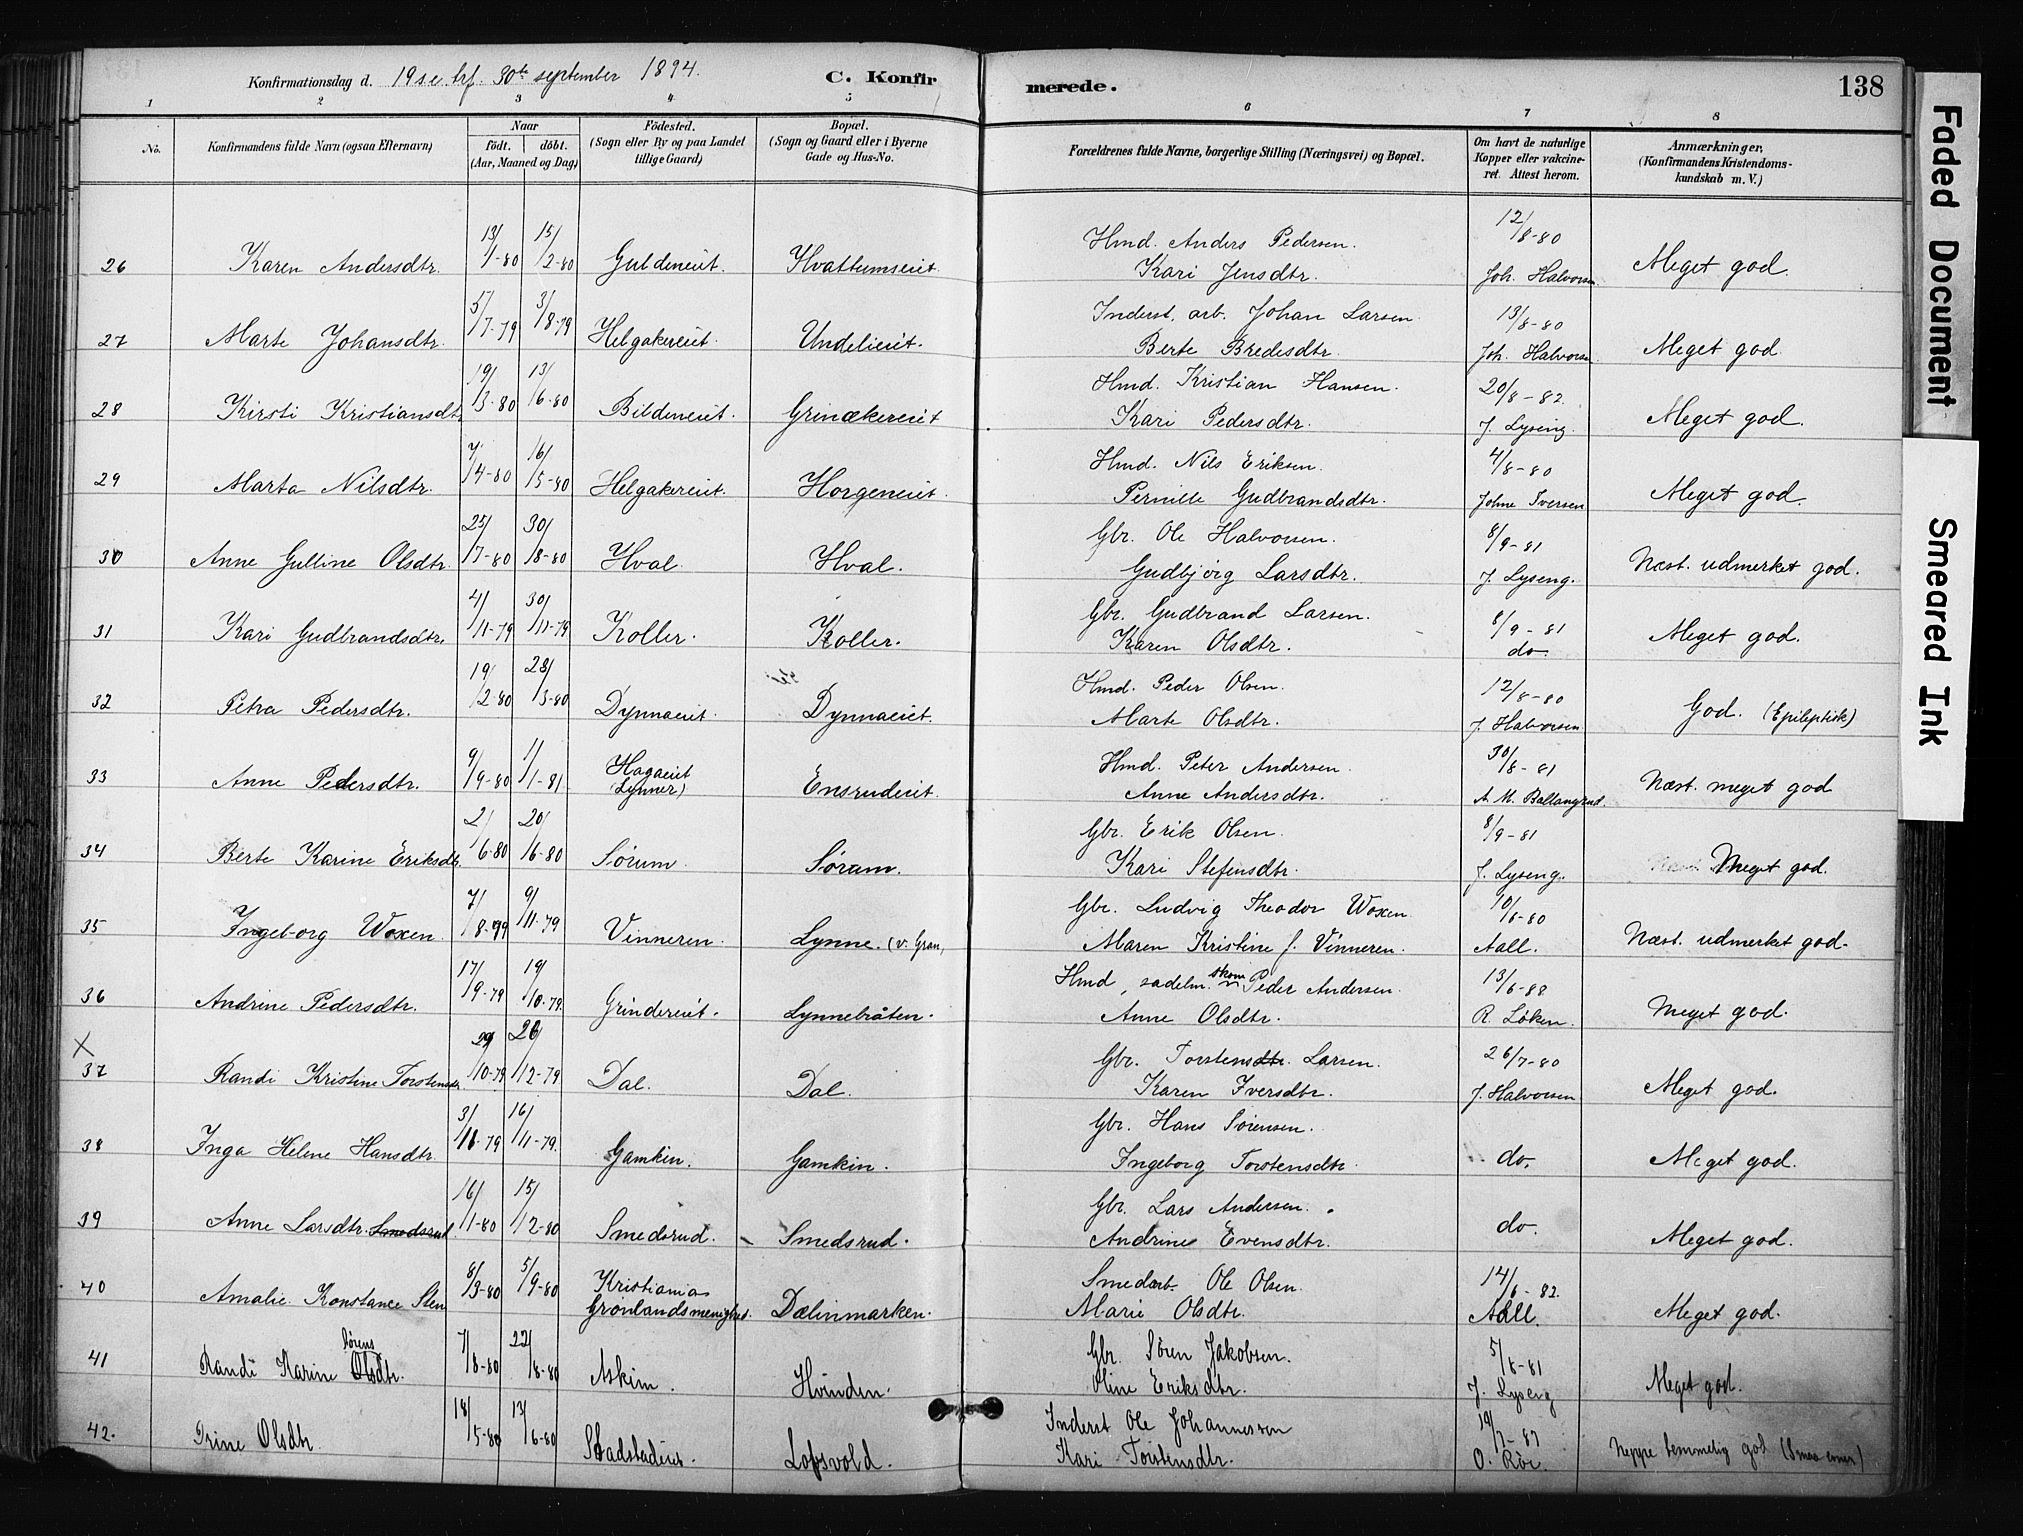 Konfirmationsdag d. 19 s. e. trf. 30te september 1894.
C. Konfirmerede.
138
1 2 3 4 5 6 7 8
No.
Konfirmandens fulde Navn (ogsaa Efternavn)
Naar
födt. döbt.
(Aar, Maaned og Dag)
Födested.
(Sogn eller By og paa Landet
tillige Gaard)
Bopæl.
(Sogn og Gaard eller i Byerne
Gade og Hus-No.
Forældrenes fulde Navne, borgerlige Stilling (Næringsvei) og Bopæl.
Om havt de naturlige
Kopper eller vakcine-
ret. Attest herom.
Anmærkninger.
(Konfirmandens Kristendoms-
kundskab m. V.)
26 Karen Andersdtr. 13/1-80 15/2-80 Guldeneiet. Hvattumseiet. Hmd. Anders Pedersen. 12/8-80
Kari Jensdtr. Joh. Halvorsen Meget god.
27 Marte Johansdtr. 5/7-79 3/8-79 Helgakereiet. Undelieiet. Inderst, arb. Johan Larsen. 13/8-80
Berte Bredesdtr. Joh. Halvorsen. Meget god
28 Kirsti Kristiansdtr 19/3-80 13/6-80 Bildeneiet. Grinækereiet Hmd. Kristian Hansen. 20/8-82.
Kari Pedersdtr. J. Lyseng. Meget god.
29 Marta Nilsdtr. 7/4-80 16/5-80 Helgakereiet. Horgeneiet. Hmd. Nils Eriksen. 4/8-80
Pernille Gudbrandsdtr. Johne Iversen Meget god.
30 Anne Gulline Olsdtr. 25/7-80 30/8-80 Hval. Hval. Gbr. Ole Halvorsen. 8/9-81
Gudbjörg Larsdtr. J. Lyseng. Næst. udmerket god.
31 Kari Gudbrandsdtr. 4/11-79 30/11-79 Koller. Koller. Gbr. Gudbrand Larsen. 8/9-81
Karen Olsdtr. do. Meget god.
32 Petra Pedersdtr. 19/2-80 28/3-80 Dynnaeiet. Dynnaeiet. Hmd. Peder Olsen. 12/8-80
Marte Olsdtr. J. Halvorsen God. (Epileptisk)
33 Anne Pedersdtr. 9/9-80 1/1-81 Hagaeiet
Lynner) Ensrudeiet. Hmd. Peter Andersen. 30/8-81
Anne Andersdtr. A. M. Ballangrud. Næst. meget god
34 Berte Karine Eriksdtr. 2/6-80 20/6-80 Sørum. Søram. Gbr. Erik Olsen. 8/9-81
Kari Stefensdtr. J. Lyseng. Meget god.
35 Ingeborg Woxen 7/8-79 9/11-79 Vinneren. Lynne. (v. Gran) Gbr. Ludvig Theodor Woxen. 10/6-80
Maren Kristine f. Vinneren. Aall. Næst. udmerket god.
36 Andrine Pedersdtr. 17/9-79 19/10-79. Grindereiet. Lynnebråten. Hmd, sadelm. skom Peder Andersen. 13/6-88
Anne Olsdtr. R. Løken. Meget god.
X
37 Randi Kristine Torstensdtr. 29/10-79 26/12-79 Dal. Dal. Gbr. Torstensdtr. Larsen. 26/7-80
Karen Iversdtr. J. Halvorsen Meget god.
38 Inga Helene Hansdtr. 3/10-79 16/11-79. Gamkin. Gamkin. Gbr. Hans Sörensen.
Ingeborg Torstensdtr. do. Meget god.
39 Anne Larsdtr. Smedsrud 16/1-80 15/12-80 Smedsrud. Smedsrud. Gbr. Lars Andersen.
Andrine Evensdtr. do. Meget god.
40 Amalie Konstance Sten 8/3-80 5/9-80 Kristiania
Grönlandsmenighed. Dælinmarken. Smedarb. Ole Olsen. 14/6-82.
Marie Olsdtr. Aall. Meget god.
41 Randi Karine Sörens Olsdtr. 7/8-80 22/8-80 Askim. Hvinden. Gbr. Sören Jakobsen. 5/8-81
Oline Eriksdtr. J. Lyseng Meget god.
42. Trine Olsdtr. 18/5-80 13/6-80 Stadstadeiet. Lopsvold. Inderst Ole Johannessen 19/7-87
Kari Torstensdtr. O. Röi. Neppe temmelig god
Faded Document
Smeared Ink